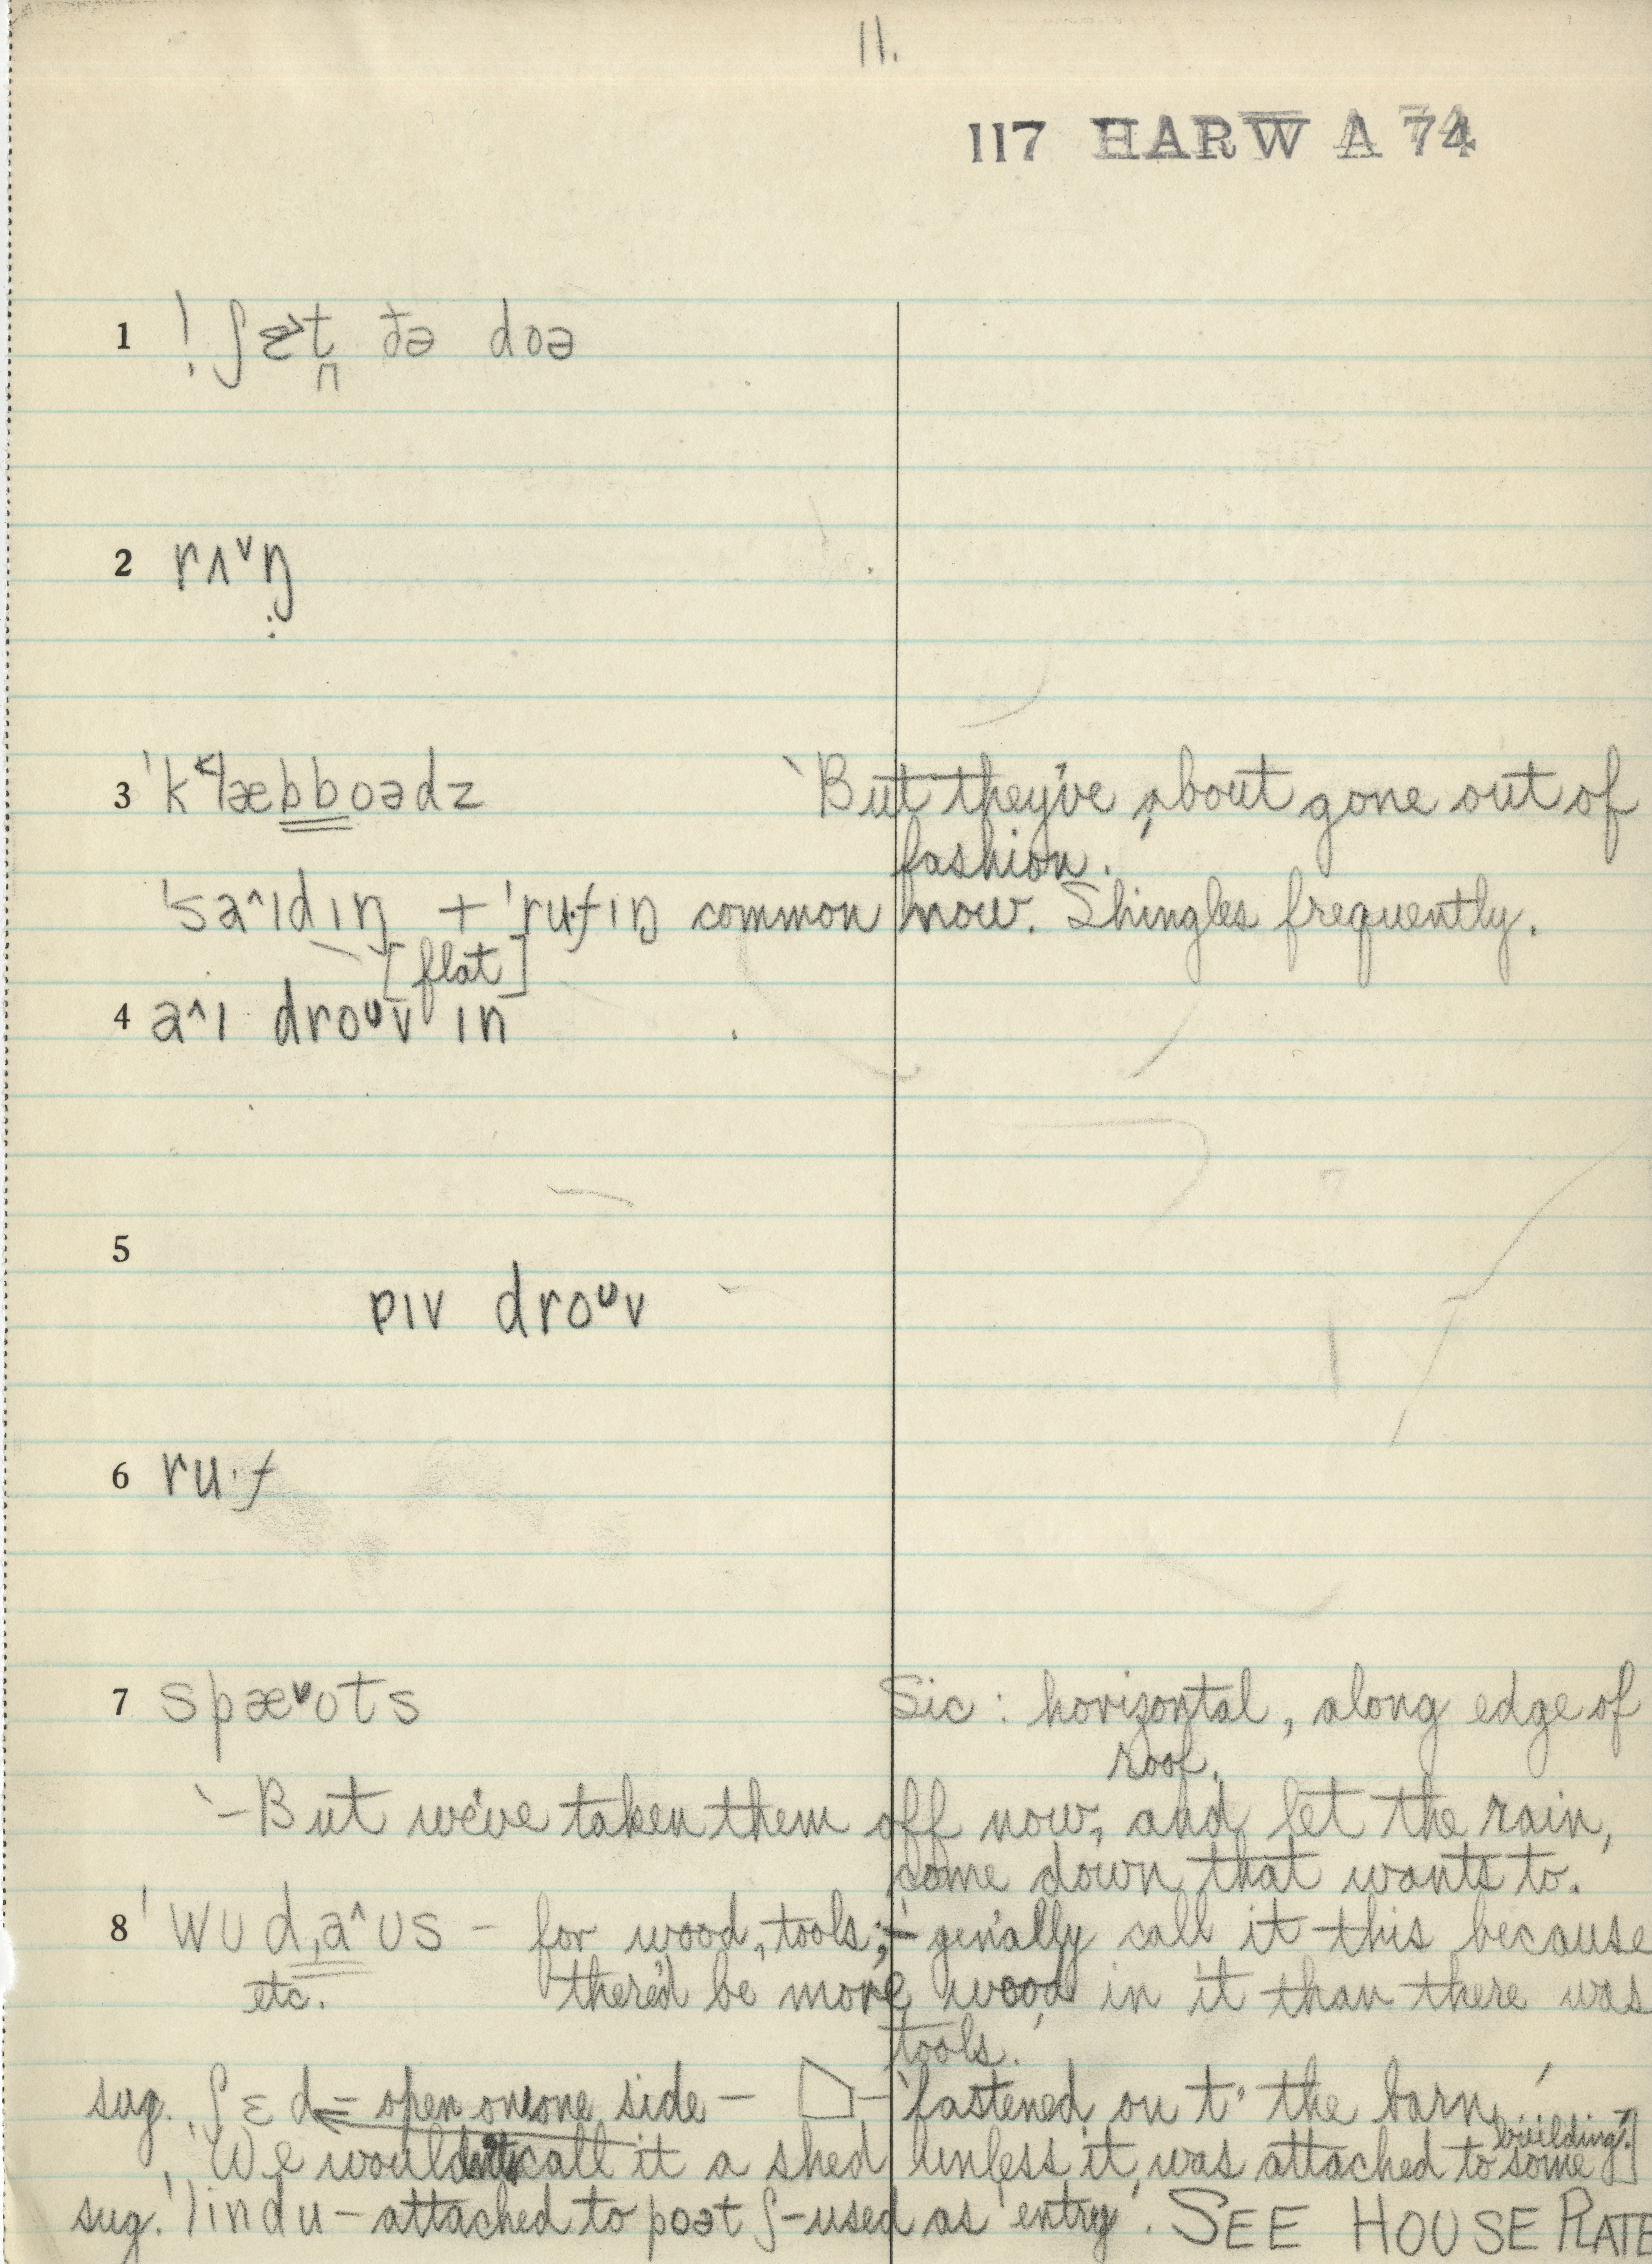 11.
117 HARW A 74
1 ! ʃɛt ðə doə
2 rʌ˅ŋ
3 ˈk˂læbboədz ‵But they've about gone out of
fashion.′
ˈsa˄ɪdɪŋ + ˈru·fɪŋ common now. Shingles frequently.
[flat]
4 a˄ɪ droᶷv ɪn
5
pɪv droᶷv
6 ru·f
7 spæ˅ʊts Sic: horizontal, along edge of
roof.
‵—But we've taken them off now, and let the rain,
come down that wants to.′
8 ˈwʊdˌa˄ʊs – for wood, tools; – ‵gen'ally call it this because
etc. there'd be more wood in it than there was
tools.′
sug. ʃɛd = open on one side — — ‵fastened on t' the barn′
‵We wouldn't call it a shed unless it was attached to some
building.′]
sug. ˈlɪndu – attached to poət ʃ – used as ‵entry′. SEE HOUSE PLATE